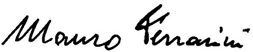 Mauro Ferrarini